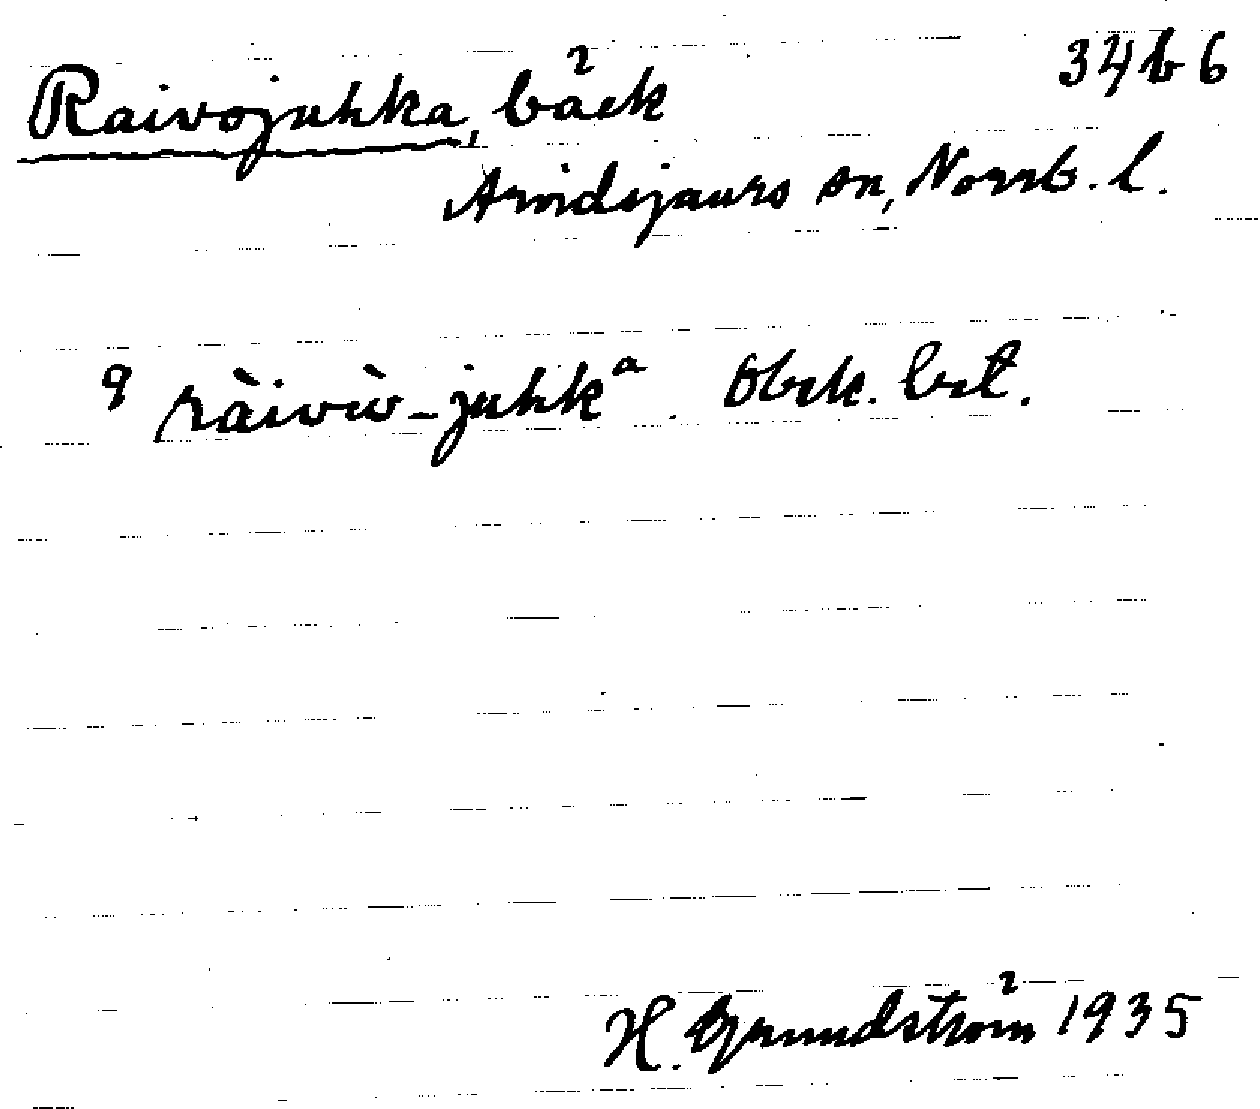 Raivojuhka, bäck 34b6
Arvidsjaurs sn, Norrb. l.
9 ràivùv-juhkᵃ. Obek. best.
H. Grundström 1935